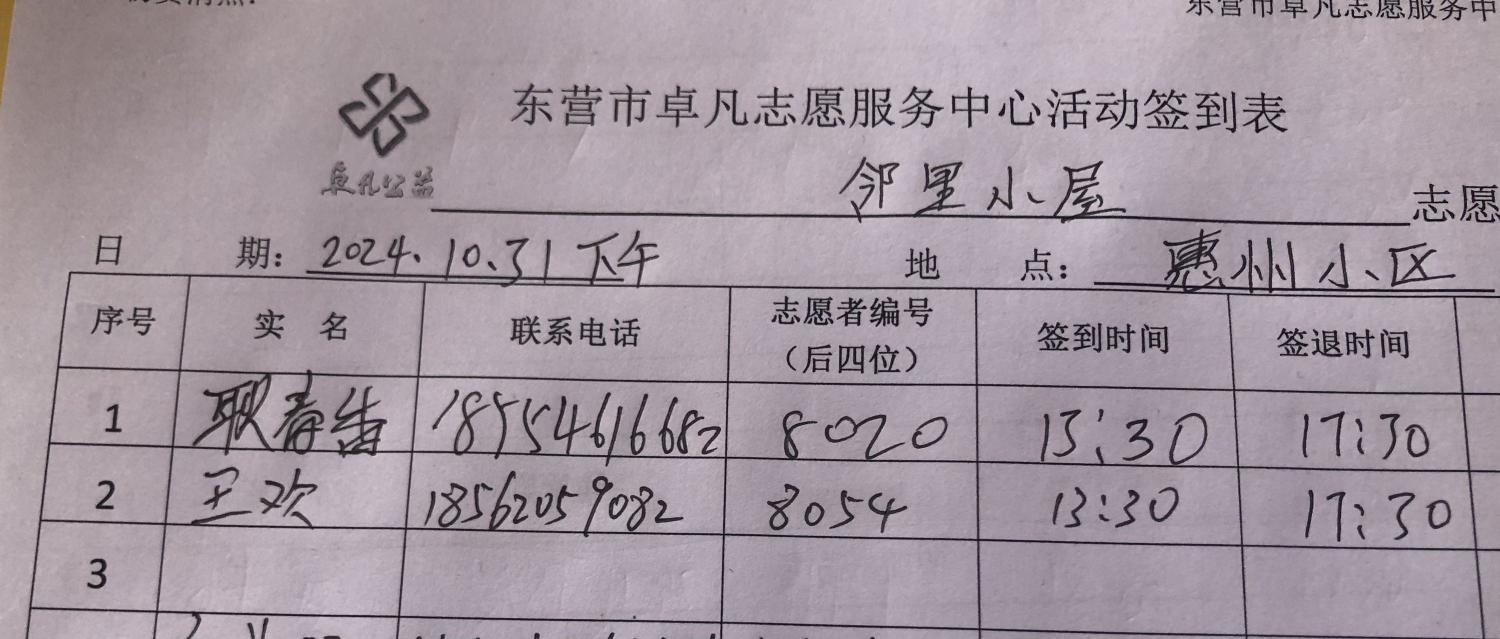 东营市卓凡志愿服务中
东营市卓凡志愿服务中心活动签到表
卓凡公益
邻里小屋 志愿
日 期: 2024.10.31下午 地 点: 惠州小区
序号 实 名 联系电话 志愿者编号 签到时间 签退时间
（后四位）
1 18554616682 8020 13:30 17:30
2 王欢 18562059082 8054 13:30 17:30
3